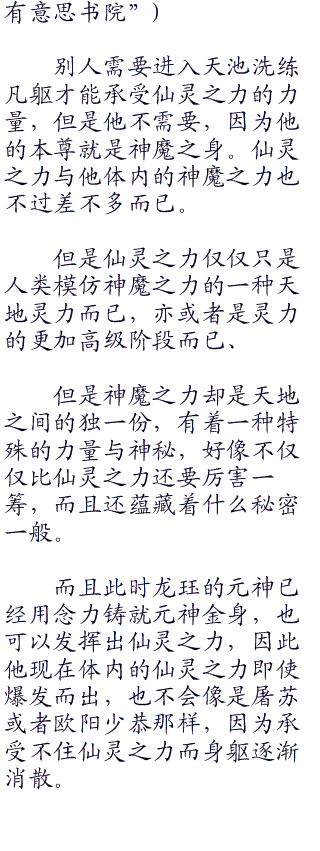 有意思书院”）
别人需要进入天池洗练
凡躯才能承受仙灵之力的力
量，但是他不需要，因为他
的本尊就是神魔之身。仙灵
之力与他体内的神魔之力也
不过差不多而已。
但是仙灵之力仅仅只是
人类模仿神魔之力的一种天
地灵力而已，亦或者是灵力
的更加高级阶段而已、
但是神魔之力却是天地
之间的独一份，有着一种特
殊的力量与神秘，好像不仅
仅比仙灵之力还要厉害一
筹，而且还蕴藏着什么秘密
一般。
而且此时龙珏的元神已
经用念力铸就元神金身，也
可以发挥出仙灵之力，因此
他现在体内的仙灵之力即使
爆发而出，也不会像是屠苏
或者欧阳少恭那样，因为承
受不住仙灵之力而身躯逐渐
消散。